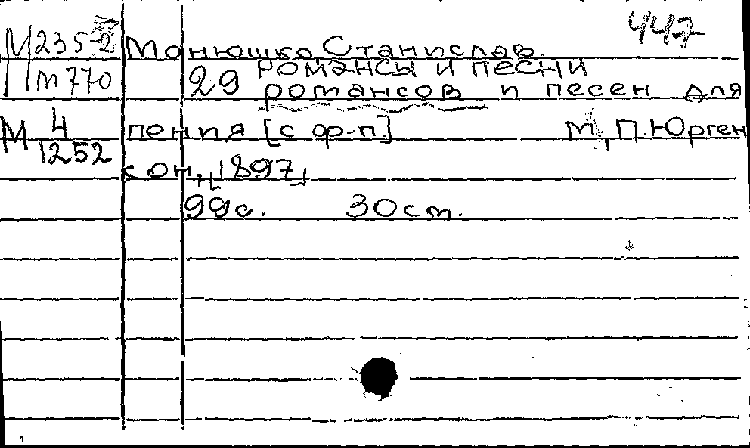 447
М 235-2 Монюшко Станислав.
m 770 романсы и песни
29 романсов и песен для
М 4/1252 пения [с ф-п] М., П. Юрген
сон, [1897]
99с. 30 cm.